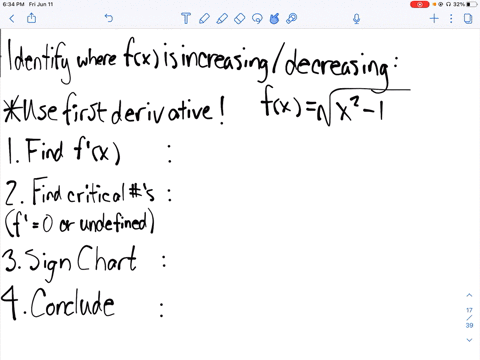 6:34 PM Fri Jun 11
32%
Identify where f(x) is increasing/decreasing:
*Use first derivative! f(x)=√x²-1
1. Find f'(x) :
2. Find critical #'s :
(f'=0 or undefined)
3. Sign Chart :
4. Conclude :
17
/
39